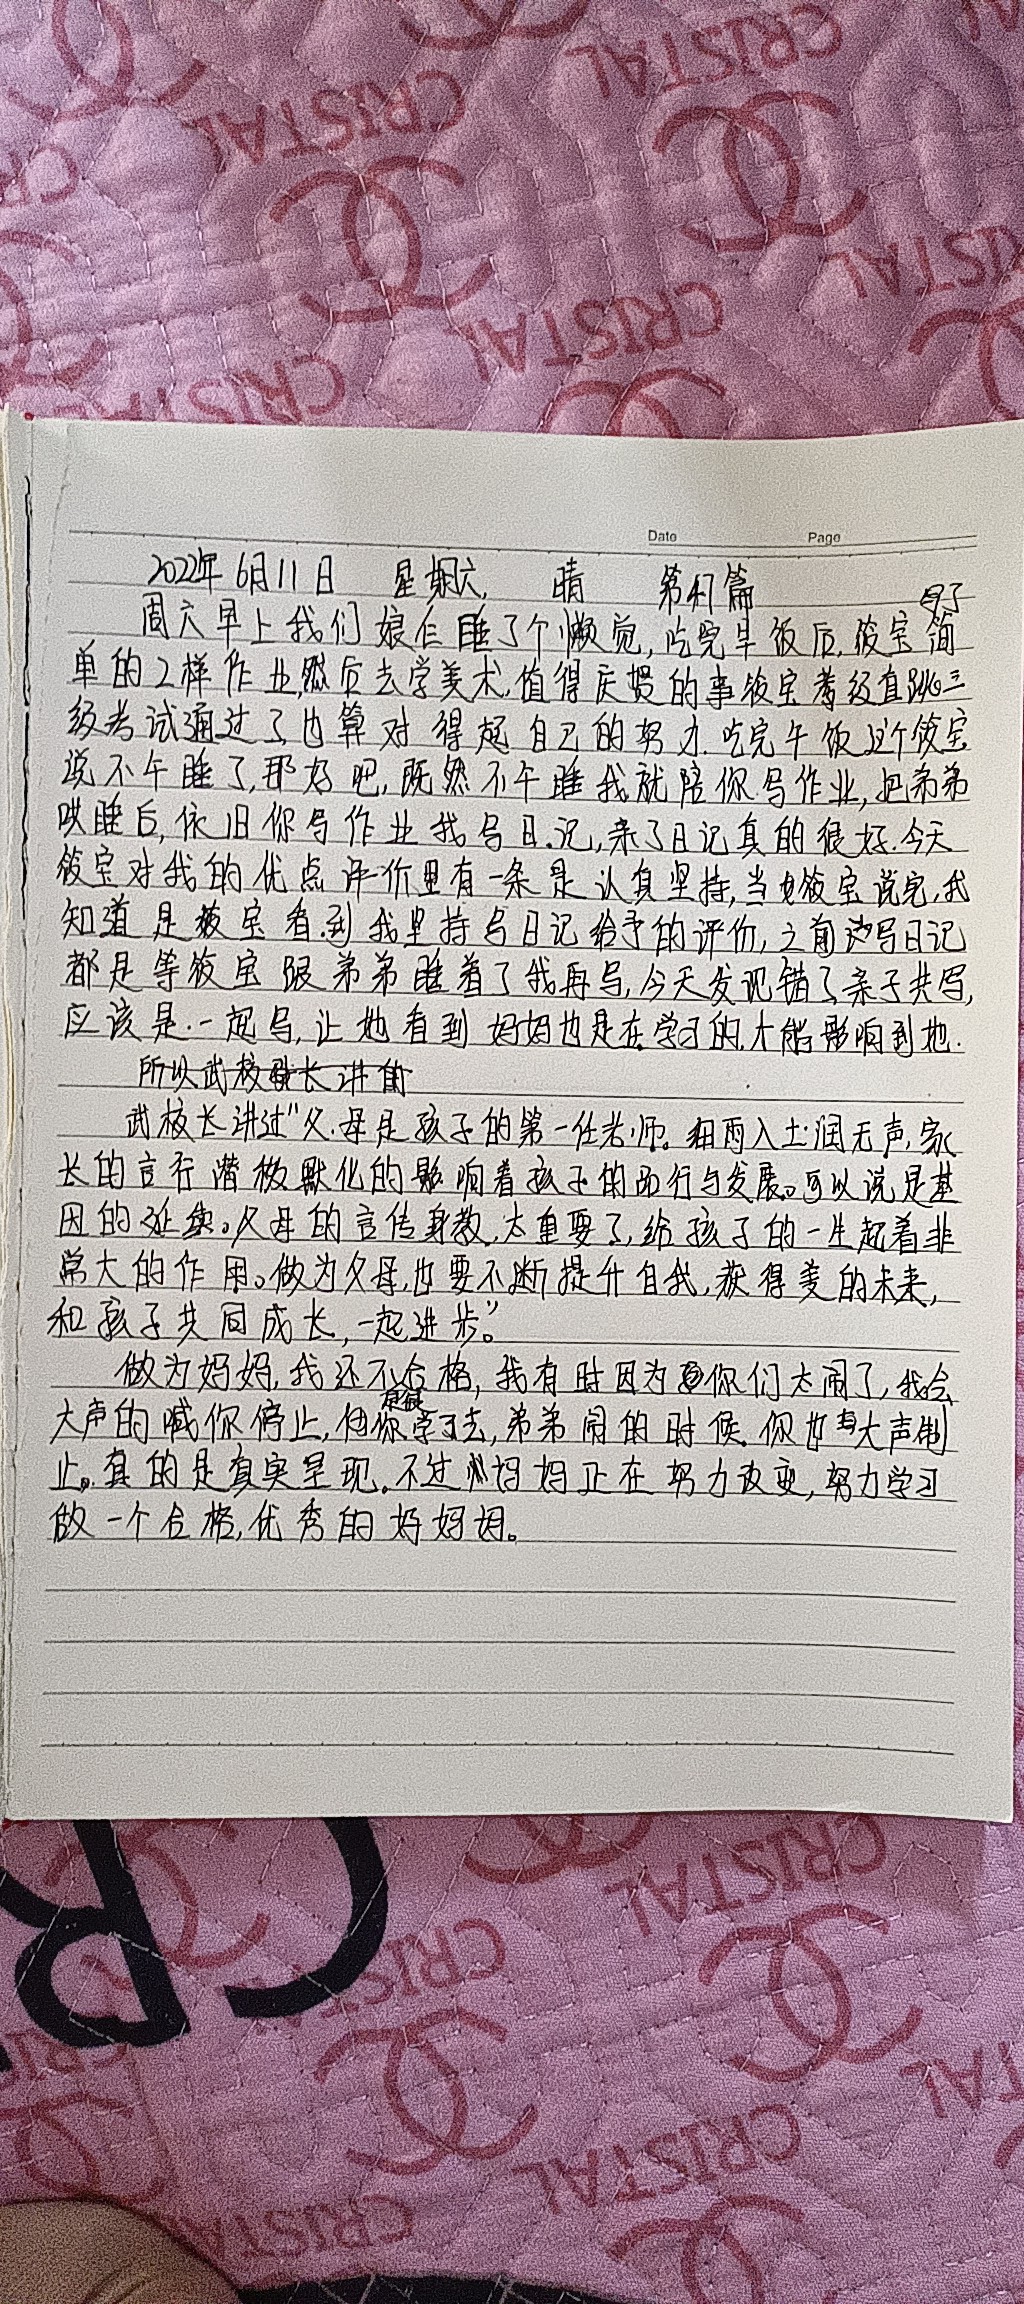 CRISTAL
CRISTAL
CRISTAL
CRISTAL
CRISTAL
CRISTAL
Date Page
2022年6月11日 星期六 晴 第41篇
写了
周六早上我们娘仨睡了个懒觉,吃完早饭后,筱宝简
单的2样作业,然后去学美术,值得庆贺的事筱宝考级直跳三
级考试通过了也算对得起自己的努力.吃完午饭这个筱宝
说不午睡了,那好吧,既然不午睡我就陪你写作业,把弟弟
哄睡后,依旧你写作业我写日记,亲子日记真的很好.今天
筱宝对我的优点评价里有一条是认真坚持,当筱宝说完,我
知道是筱宝看到我坚持写日记给予的评价,之前写日记
都是等筱宝跟弟弟睡着了我再写,今天发现错了亲子共写,
应该是一起写,让她看到妈妈也是在学习的,才能影响到她.
所以武校长讲的
武校长讲过"父母是孩子的第一任老师。细雨入土润无声,家
长的言行潜移默化的影响着孩子的言行与发展。可以说是基
因的延续。父母的言传身教,太重要了,给孩子的一生起着非
常大的作用。做为父母,也要不断提升自我,获得美的未来,
和孩子共同成长,一起进步。"
做为妈妈,我还不合格,我有时因为你们太闹了,我会
大声的喊你停止,但你学了去,弟弟闹的时候.你也大声制
止。真的是真实呈现。不过妈妈正在努力改变,努力学习
做一个合格,优秀的好妈妈。
CRISTAL
CRISTAL
CRISTAL
CRISTAL
CRISTAL
CRISTAL